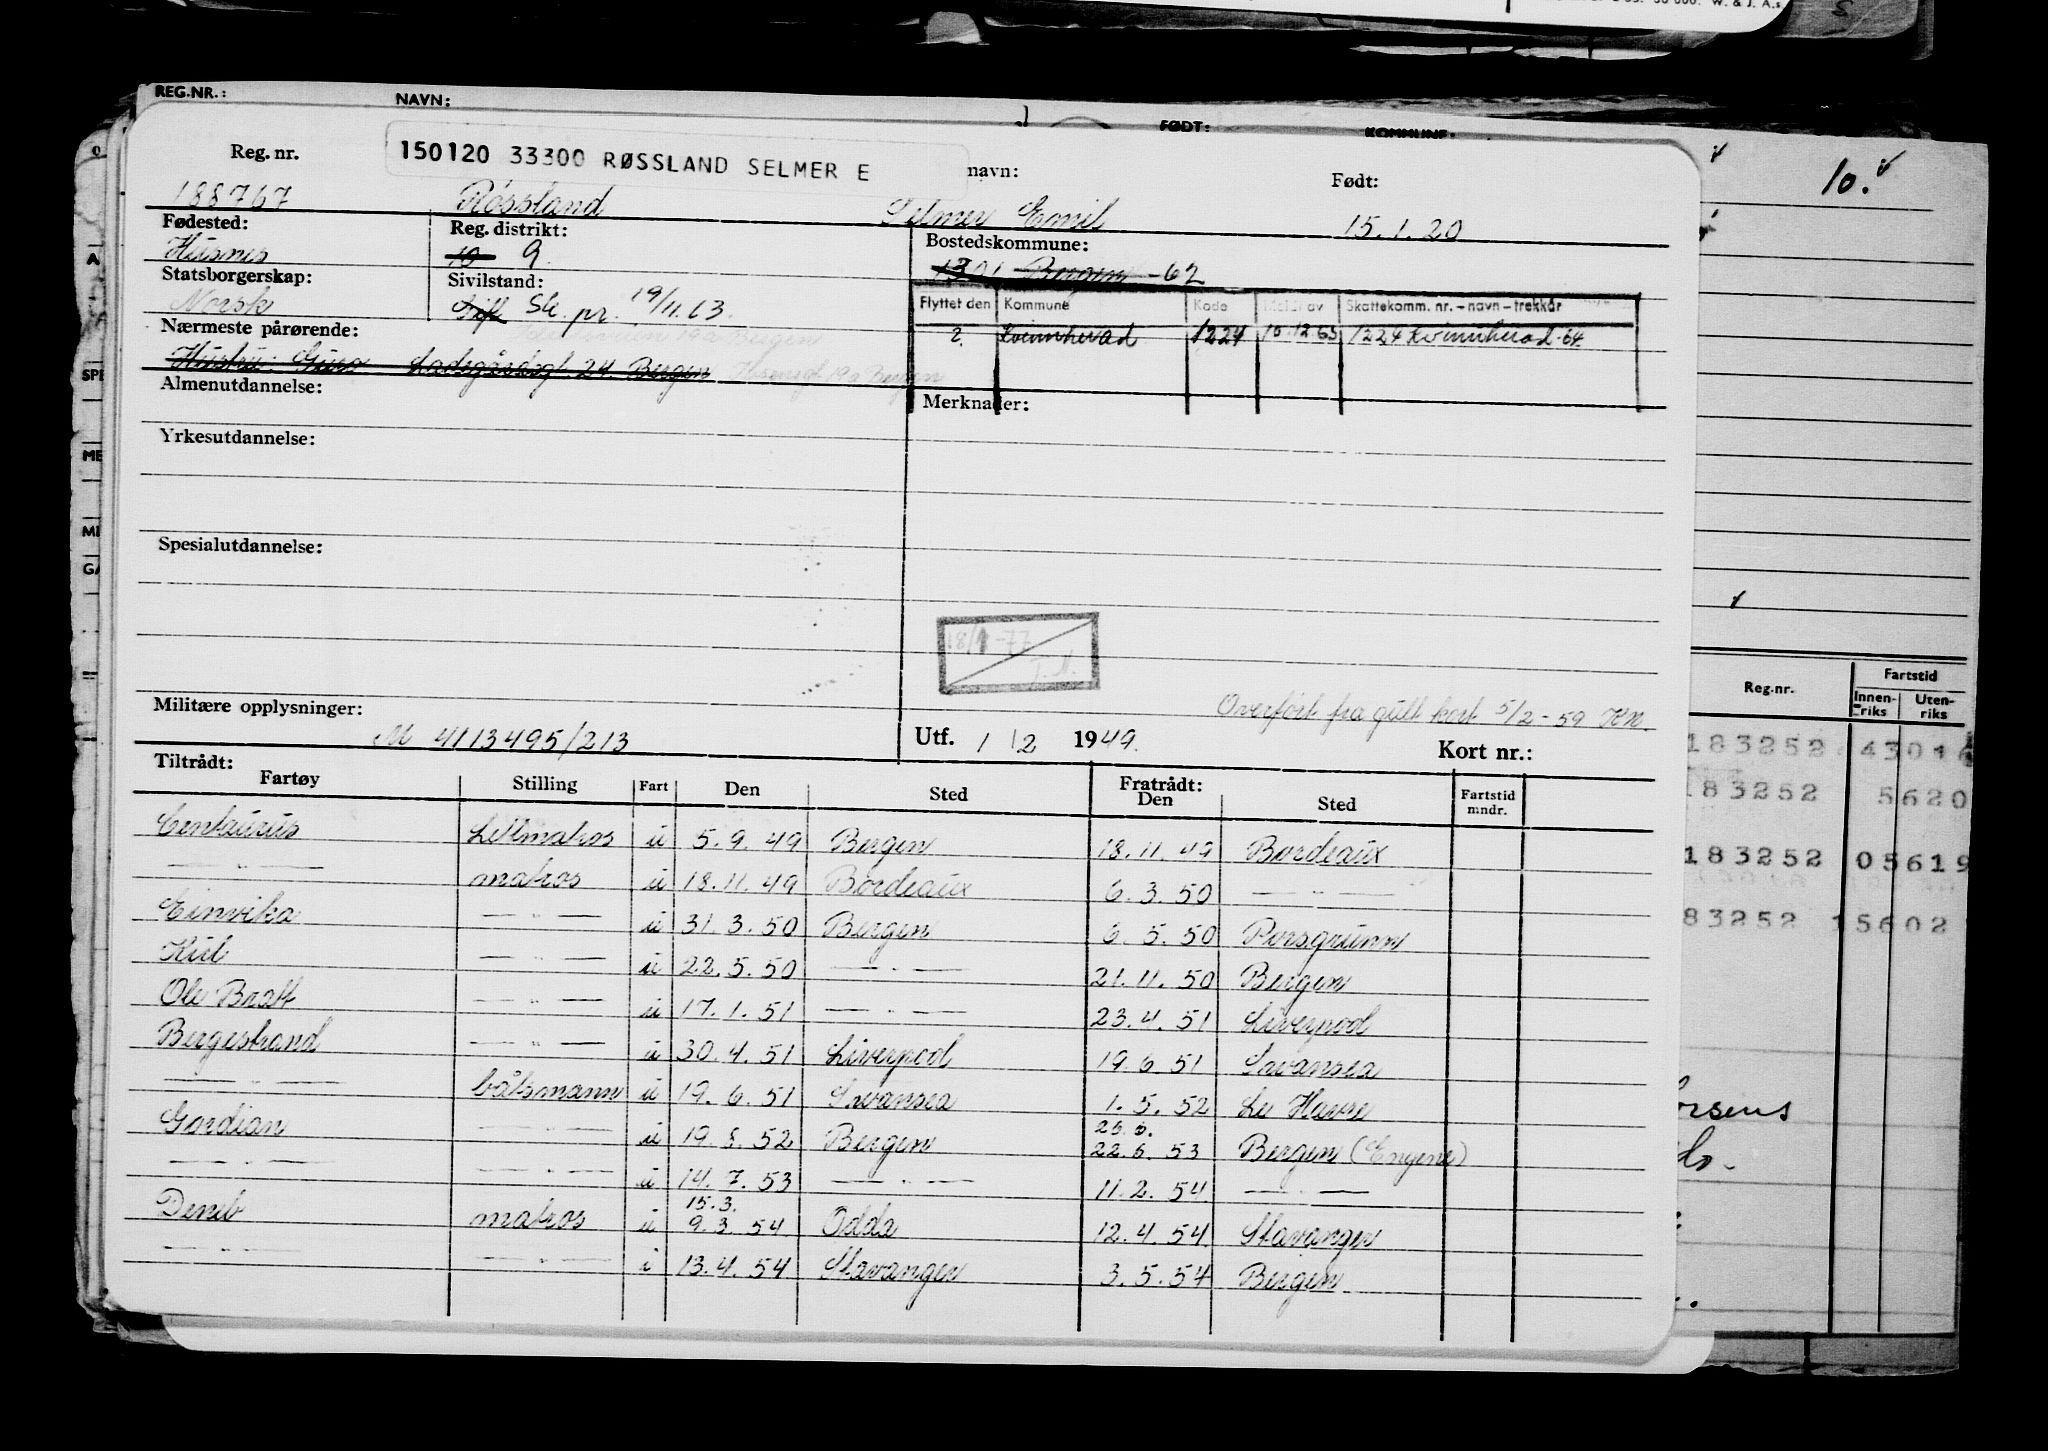 50 000. W. & J. A.s
REG.NR.: NAVN: FØDT: KOMMUNE:
Reg. nr. 150120 33300 RØSSLAND SELMER E navn: Født:
188767 Røssland Selmer Emil 15.1.20
Fødested: Reg. distrikt: Bostedskommune:
Husnes 10 9 1301 Bergen -62
Statsborgerskap: Sivilstand:
Norsk Gift Sk. pr. 19/11.63.
Flyttet den Kommune Kode Meld av Skattekomm. nr. – navn – trekkår
? Kvinnherad 1224 10.12.63 1224 Kvinnherad-64
Nærmeste pårørende:
Hustru: Guro Ladegårdsgt. 24. Bergen
Almenutdannelse: Merknader:
Yrkesutdannelse:
Spesialutdannelse:
18/1-77
T.M.
Overført fra gult kort 5/2-59 KN.
Militære opplysninger:
M 4113495/213 Utf. 1/2 1949. Kort nr.:
Tiltrådt: Fratrådt:
Fartøy Stilling Fart Den Sted Den Sted Fartstid mndr.
Centaurus Lettmatros u 5.9.49 Bergen 18.11.49 Bordeaux
— " — matros u 18.11.49 Bordeaux 6.3.50 — " —
Einvika — " — u 31.3.50 Bergen 6.5.50 Porsgrunn
Kiel — " — u 22.5.50 — " — 21.11.50 Bergen
Ole Bratt — " — u 17.1.51 — " — 23.4.51 Liverpool
Bergestrand — " — u 30.4.51 Liverpool 19.6.51 Swansea
— " — båtsmann u 19.6.51 Swansea 1.5.52 Le Havre
Gordian — " — u 19.8.52 Bergen 26.6. 22.6.53 Bergen (Engene)
— " — — " — u 14.7.53 — " — 11.2.54 — " —
Deneb matros u 15.3. 9.3.54 Odda 12.4.54 Stavanger
— " — — " — i 13.4.54 Stavanger 3.5.54 Bergen
10.
Reg.nr. Fartstid
Innen-riks Uten-riks
183252 43016
183252 5620
183252 05619
83252 15602